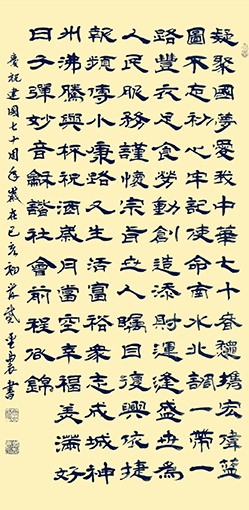 凝聚國夢愛我中華七十春龝攜宏偉藍
圖不忘初心牢記使命南水北調一帶一
路豐衣足食勞動創造添財運逢盛世為
人民服務謹懷宗旨世人矚目復興依捷
報頻傳小康路久生活富裕衆志成城神
州沸騰興杯祝酒歲月當空幸福美滿好
日子彈妙音龢諧社會前程似錦
慶祝建國七十周年歲在己亥初 書